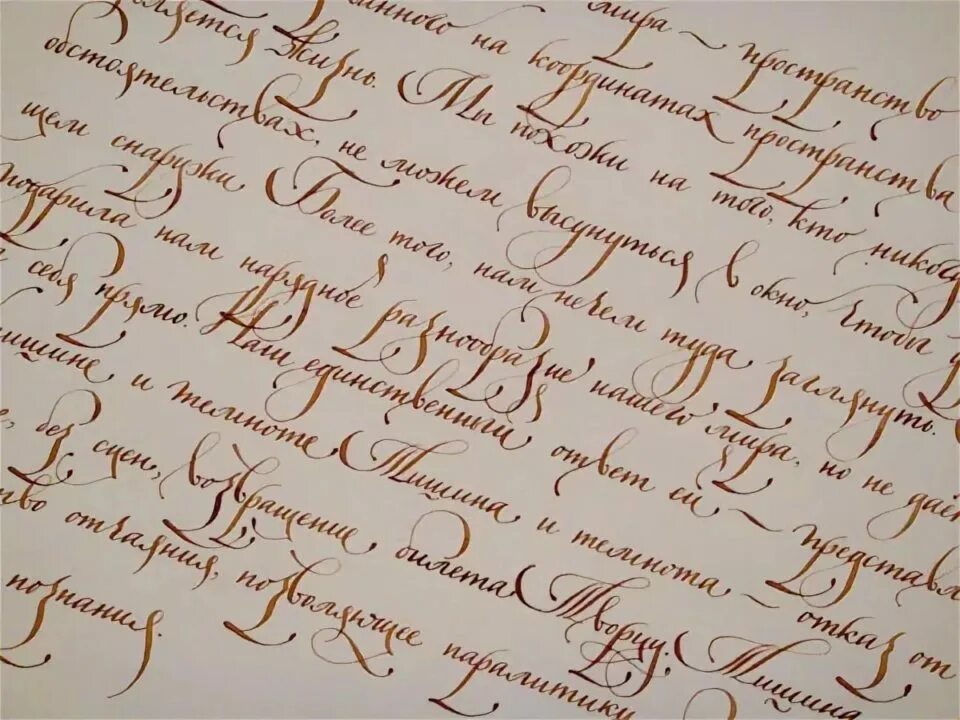 мира ~ пространство
на координатах пространства
жизнь. Мы похожи на того, кто
обстоятельствах, не можем высунуться в окно, чтобы
щем снаружи. Более того, нам нечем туда заглянуть.
подарила нам нарядное разнообразие нашего мира, но не даё
себя прямо. Наш единственный ответ ей ~ представл
ишине и темноте. Тишина и темнота ~ отказ от
без сцен, возвращение билета Творцу. Тишина
тво отчаяния, позволяющее паралитику
познания.